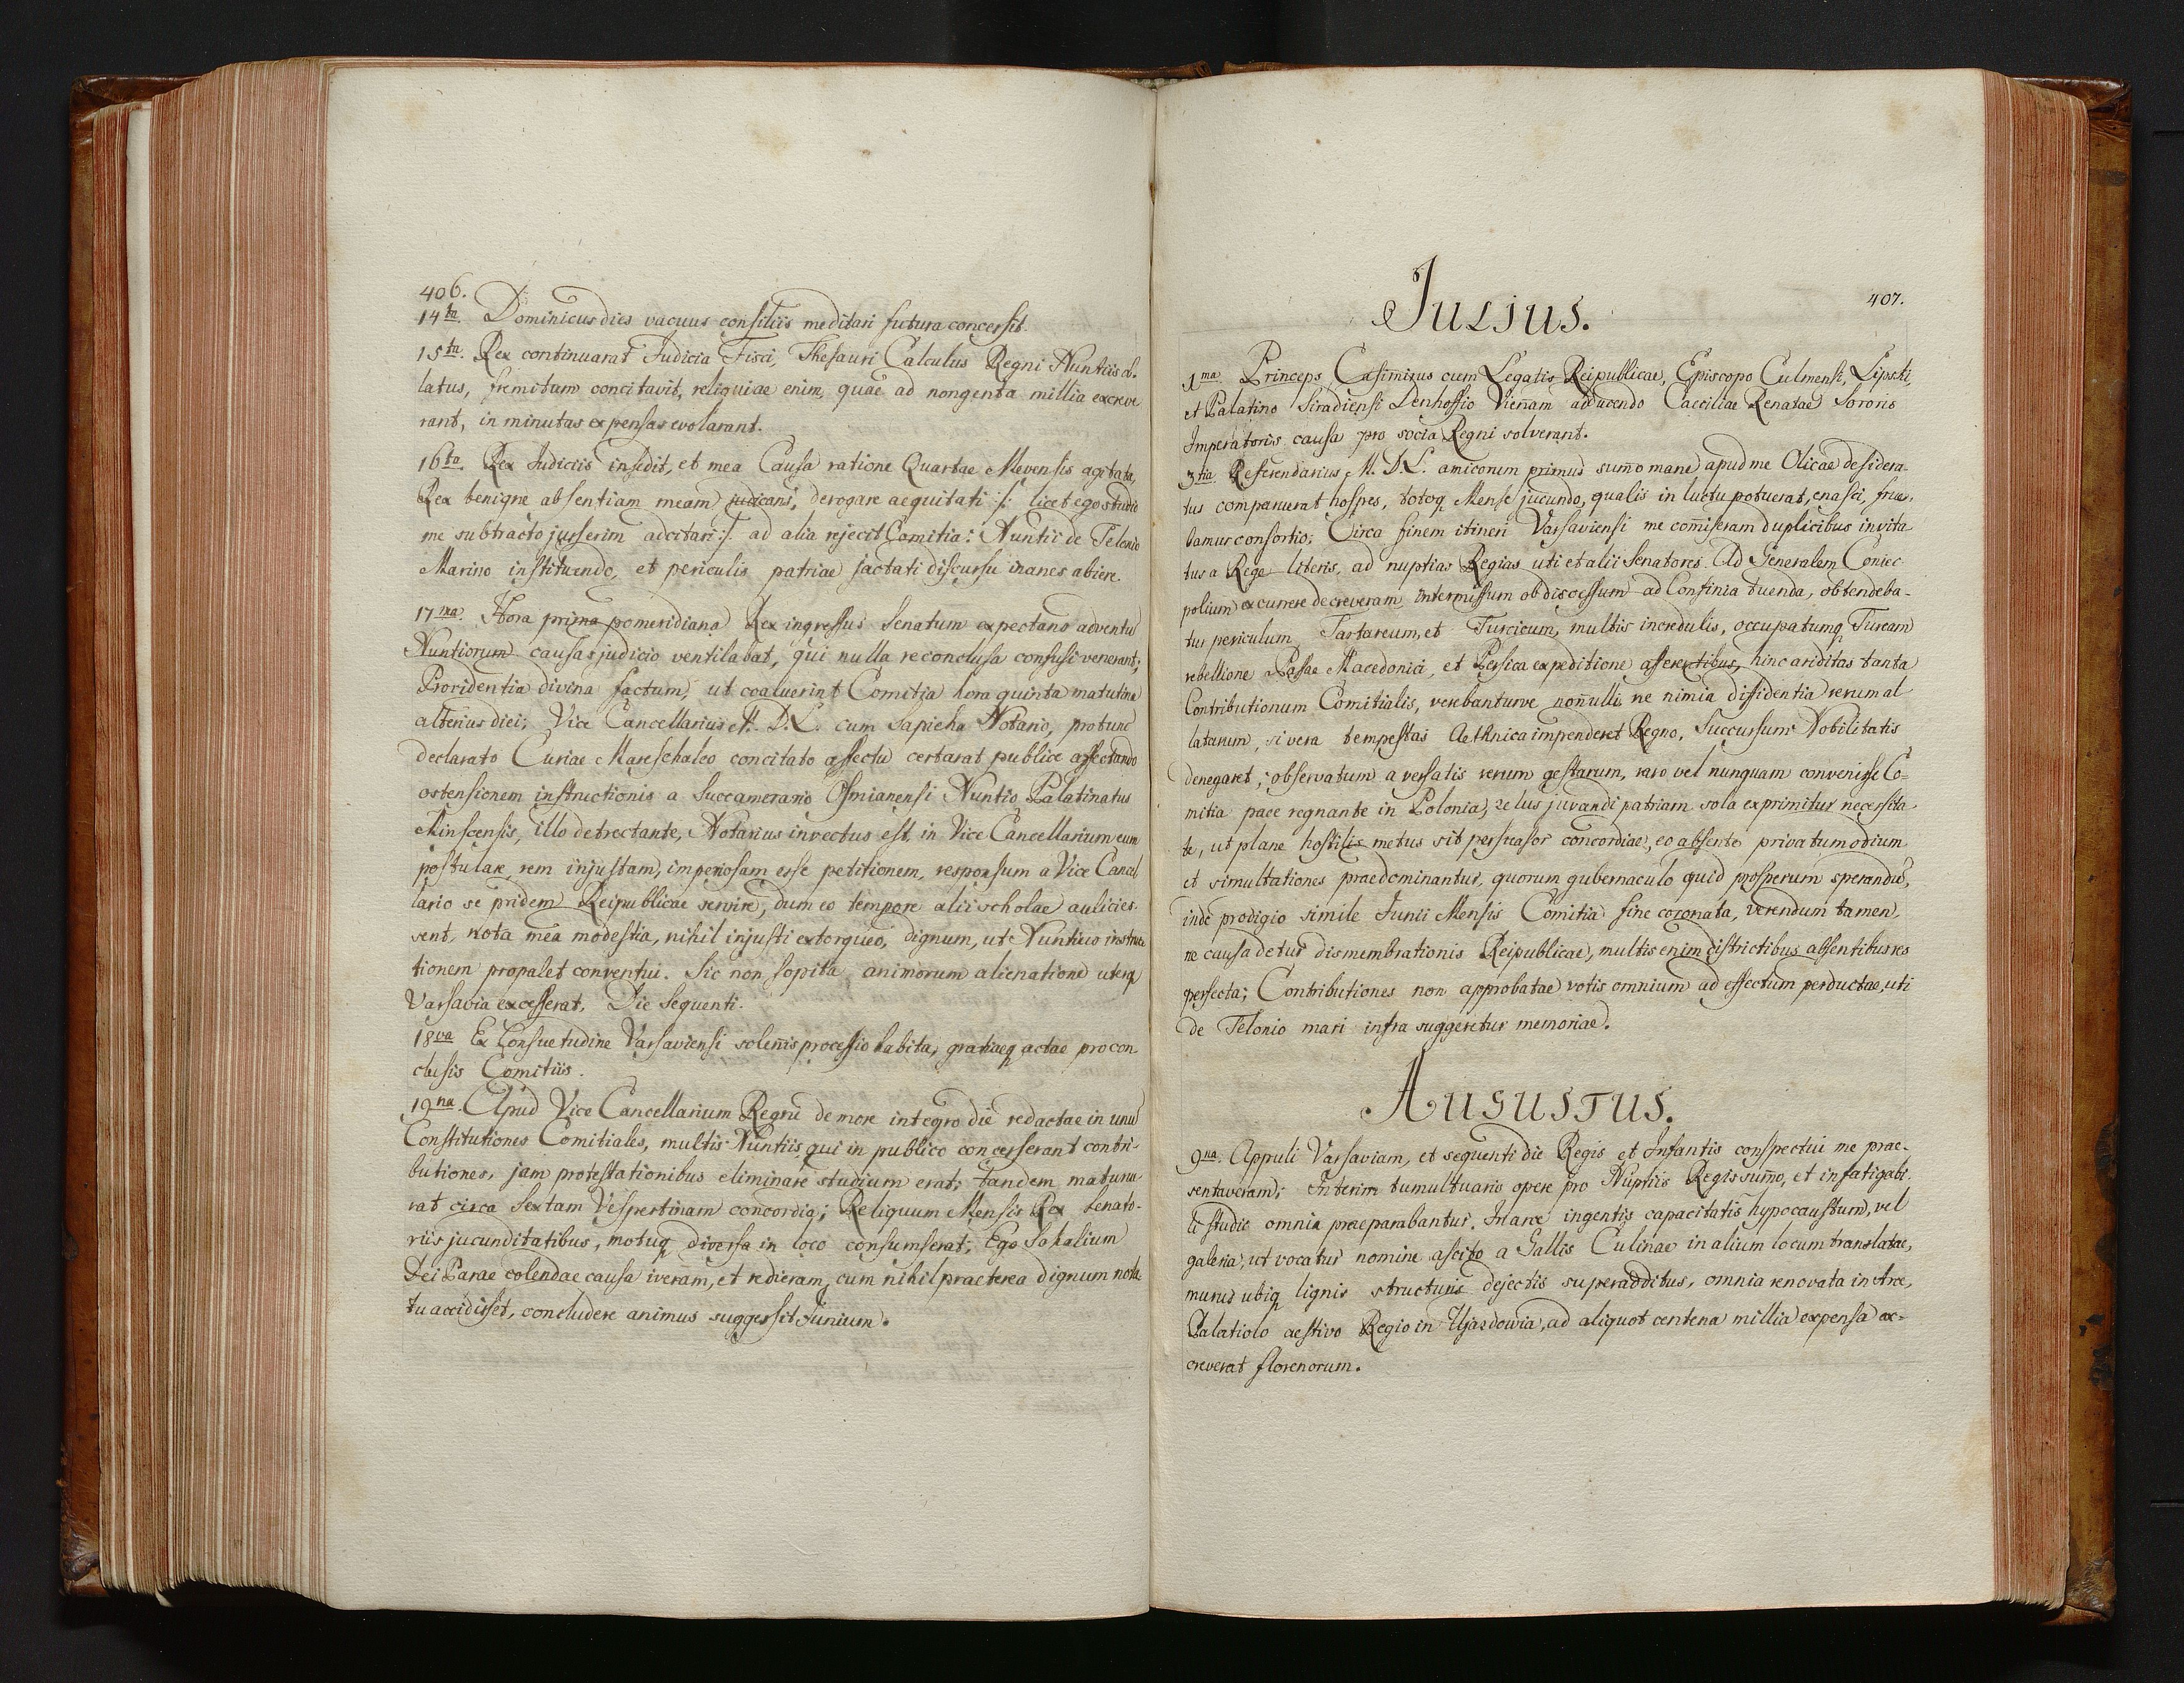 406.
14ta. Dominicus dies vacuus consiliis meditari futura concessit.
15ta. Rex continuarat Judicia Fisci, Thesauri Calculus Regni Nuntiis al-
latus, fremitum concitavit, reliquiae enim, quae ad nongenta millia excreve
rant, in minutas expensas evolarant.
16ta. Rex Judiciis insedit, et mea Causa ratione Quartae Mevensis agitata,
Rex benigne absentiam meam judicans, derogare aequitati :/: licet ego studio
me subtracto jusserim adcitari :/: ad alia rejecit Comitia: Nuntii de Telonio
Marino instituendo, et periculis patriae jactati discursu inanes abiere.
17ma. Hora prima pomeridiana Rex ingressus Senatum expectans adventū
Nuntiorum causas judicio ventilabat, qui nulla re conclusa confusi venerant;
Providentia divina factum, ut coaluerint Comitia hora quinta matutina
alterius diei; Vice Cancellarius M. D. L. cum Sapieha Notario, pro tunc
declarato Curiae Mareschalco concitato affectu certarat publice affectando
ostensionem instructionis a Succamerario Osmianensi Nuntio Palatinatus
Minscensis, illo detrectante, Notarius invectus est in Vice Cancellarium eum
postulare rem injustam, imperiosam esse petitionem, responsum a Vice Cancel
lario se pridem Reipublicae servire, dum eo tempore alii scholae aulici es-
sent, nota mea modestia, nihil injusti extorqueo, dignum, ut Nuntius instruc
tionem propalet conventui. Sic non sopita animorum alienatione uterq
Varsavia excesserat. Die Sequenti.
18va Ex Consuetudine Varsaviensi solenis processio habita, gratiaeq actae pro con
clusis Comitiis.
19na. Apud Vice Cancellarium Regni de more integro die redactae in unū
Constitutiones Comitiales, multis Nuntiis, qui in publico concesserant contri-
butiones, jam protestationibus eliminare studium erat; tandem matura-
rat circa Sextam Vespertinam concordia; Reliquum Mensis Rex Senato-
riis jucunditatibus, motuq diversa in loco consumserat; Ego Sokalium
Dei Parae colendae causa iveram, et redieram, cum nihil praeterea dignum nota
tu accidisset, concludere animus suggessit Junium.
407.
Julius.
1ma. Princeps Casimirus cum Legatis Reipublicae, Episcopo Culmensi, Lipski,
et Palatino Siradiensi Denhoffio Vienam adducendo Caeciliae Renatae Sororis
Imperatoris causa pro socia Regni solverant.
3tia. Referendarius M. D. L. amicorum primus sumo mane apud me Olicae desidera-
tus comparuerat hospes, totoq Mense jucundo, qualis in luctu potuerat, enasci, frue-
bamur consortio; Circa finem itineri Varsaviensi me comiseram duplicibus invita
tus a Rege literis, ad nuptias Regias uti et alii Senatores. Ad Generalem Coniec-
polium excurrere decreveram, intermissum ob discessum ad Confinia tuenda, obtendeba-
tur periculum Tartareum, et Turcicum, multis incredulis, occupatumq Turcam
rebellione Bassae Macedonici, et Persica expeditione asserentibus, hinc ariditas tanta
Contributionum Comitialis, verebanturve nonulli, ne nimia diffidentia rerum al
latarum, si vera tempestas Aethnica impenderet Regno, Succursum Nobilitatis
denegaret; observatum a versatis rerum gestarum, raro vel nunquam convenisse Co-
mitia pace regnante in Polonia, zelus juvandi patriam sola exprimitur necessita-
te, ut plane hostilis metus sit persuasor concordiae, eo absente privatum odium
et simultationes praedominantur, quorum gubernaculo quid prosperum sperandū,
inde prodigio simile Junii Mensis Comitia fine coronata, verendum tamen,
ne causa detur dismembrationis Reipublicae, multis enim districtibus absentibus res
perfecta; Contributiones non approbatae votis omnium ad effectum perductae, uti
de Telonio mari infra suggeretur memoriae.
Augustus.
9na. Appuli Varsaviam, et sequenti die Regis et Infantis conspectui me prae-
sentaveram; Interim tumultuario opere pro Nuptiis Regis sumo, et infatigabi-
li studio omnia praeparabantur. In arce ingentis capacitatis hypocaustum, vel
galeria, ut vocatur nomine ascito a Gallis Culinae in alium locum translatae,
murus ubiq lignis structuris dejectis superadditus, omnia renovata in Arce,
Palatiolo aestivo Regio in Ujasdowia, ad aliquot centena millia expensa ex-
creverat florenorum.